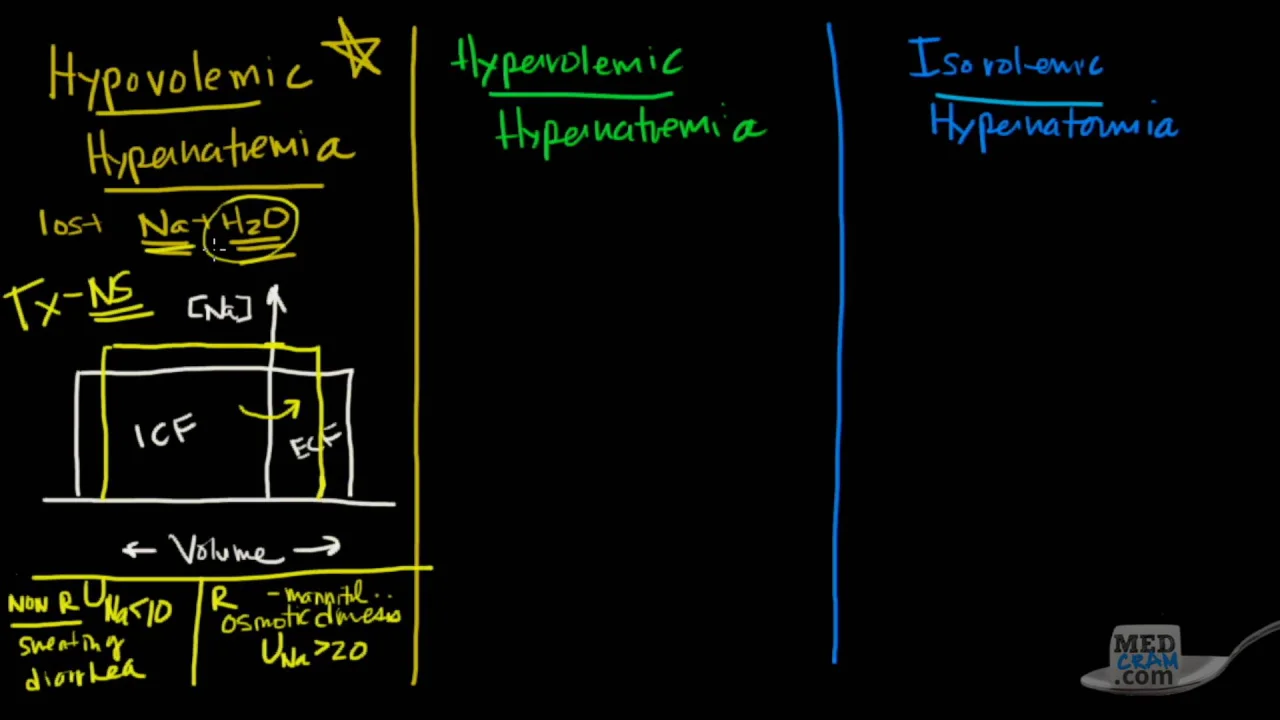 Hypovolemic
Hypernatremia
lost Na + H2O
Tx - NS
[Na]
ICF
ECF
← Volume →
NON R UNa<10
sweating
diarrhea
R - mannitol..
osmotic diuresis
UNa >20
Hypervolemic
Hypernatremia
Isovolemic
Hypernatormia
MED
CRAM
.com